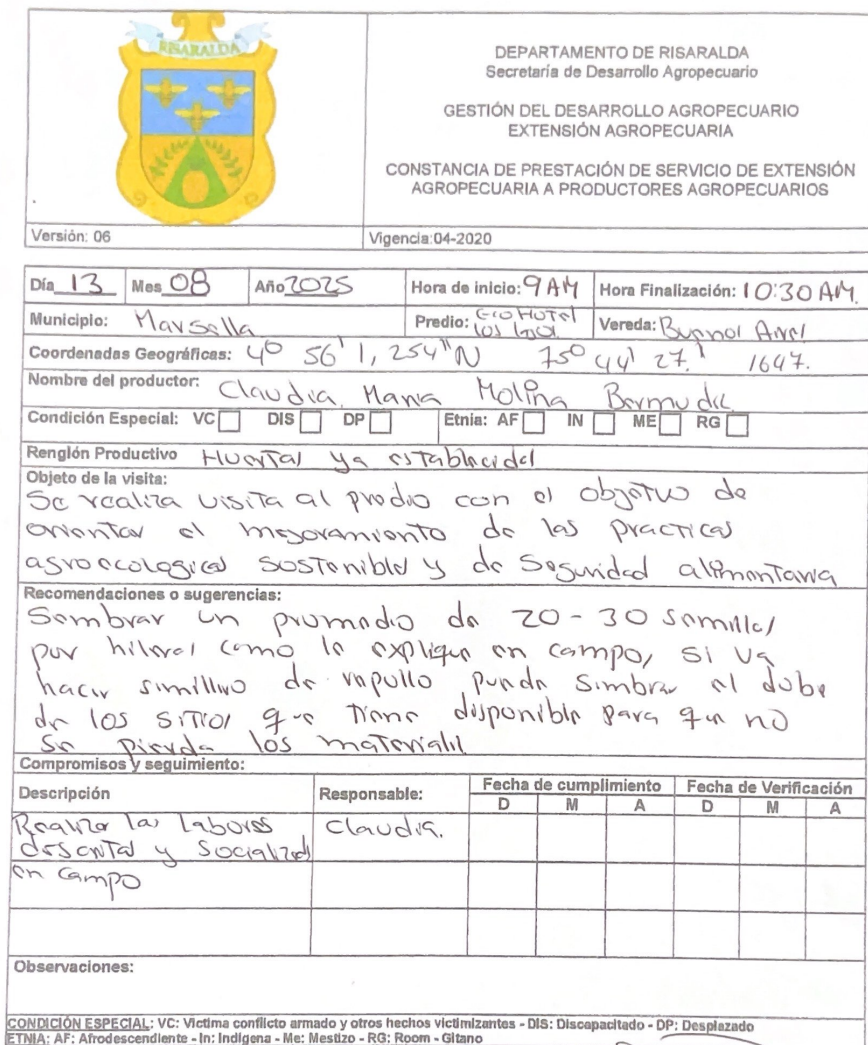 RISARALDA
DEPARTAMENTO DE RISARALDA
Secretaría de Desarrollo Agropecuario
GESTIÓN DEL DESARROLLO AGROPECUARIO
EXTENSIÓN AGROPECUARIA
CONSTANCIA DE PRESTACIÓN DE SERVICIO DE EXTENSIÓN
AGROPECUARIA A PRODUCTORES AGROPECUARIOS
Versión: 06 Vigencia:04-2020
Día 13 Mes 08 Año 2025 Hora de inicio: 9 AM Hora Finalización: 10:30 AM.
Municipio: Marsella Predio: Eco Hotel los Vereda: Buenos Aires
Coordenadas Geográficas: 4° 56' 1,254" N 75° 44' 27.' 1647.
Nombre del productor: Claudia Maria Molina Bermudez
Condición Especial: VC DIS DP Etnia: AF IN ME RG
Renglón Productivo Huertas ya establecidas
Objeto de la visita:
Se realiza visita al predio con el objetivo de
orientar el mejoramiento de las practicas
agroecologicas sostenibles y de seguridad alimentaria
Recomendaciones o sugerencias:
Sembrar un promedio de 20-30 semillas
por hileras como le explique en campo, si va
hacer semillero de repollo puede sembrar el doble
de los sitios que tiene disponible para que no
se pierda los materiales
Compromisos y seguimiento:
Descripción Responsable: Fecha de cumplimiento Fecha de Verificación
D M A D M A
Realizar las labores Claudia.
descritas y socializadas
en campo
Observaciones:
CONDICIÓN ESPECIAL: VC: Victima conflicto armado y otros hechos victimizantes - DIS: Discapacitado - DP: Desplazado
ETNIA: AF: Afrodescendiente - In: Indígena - Me: Mestizo - RG: Room - Gitano